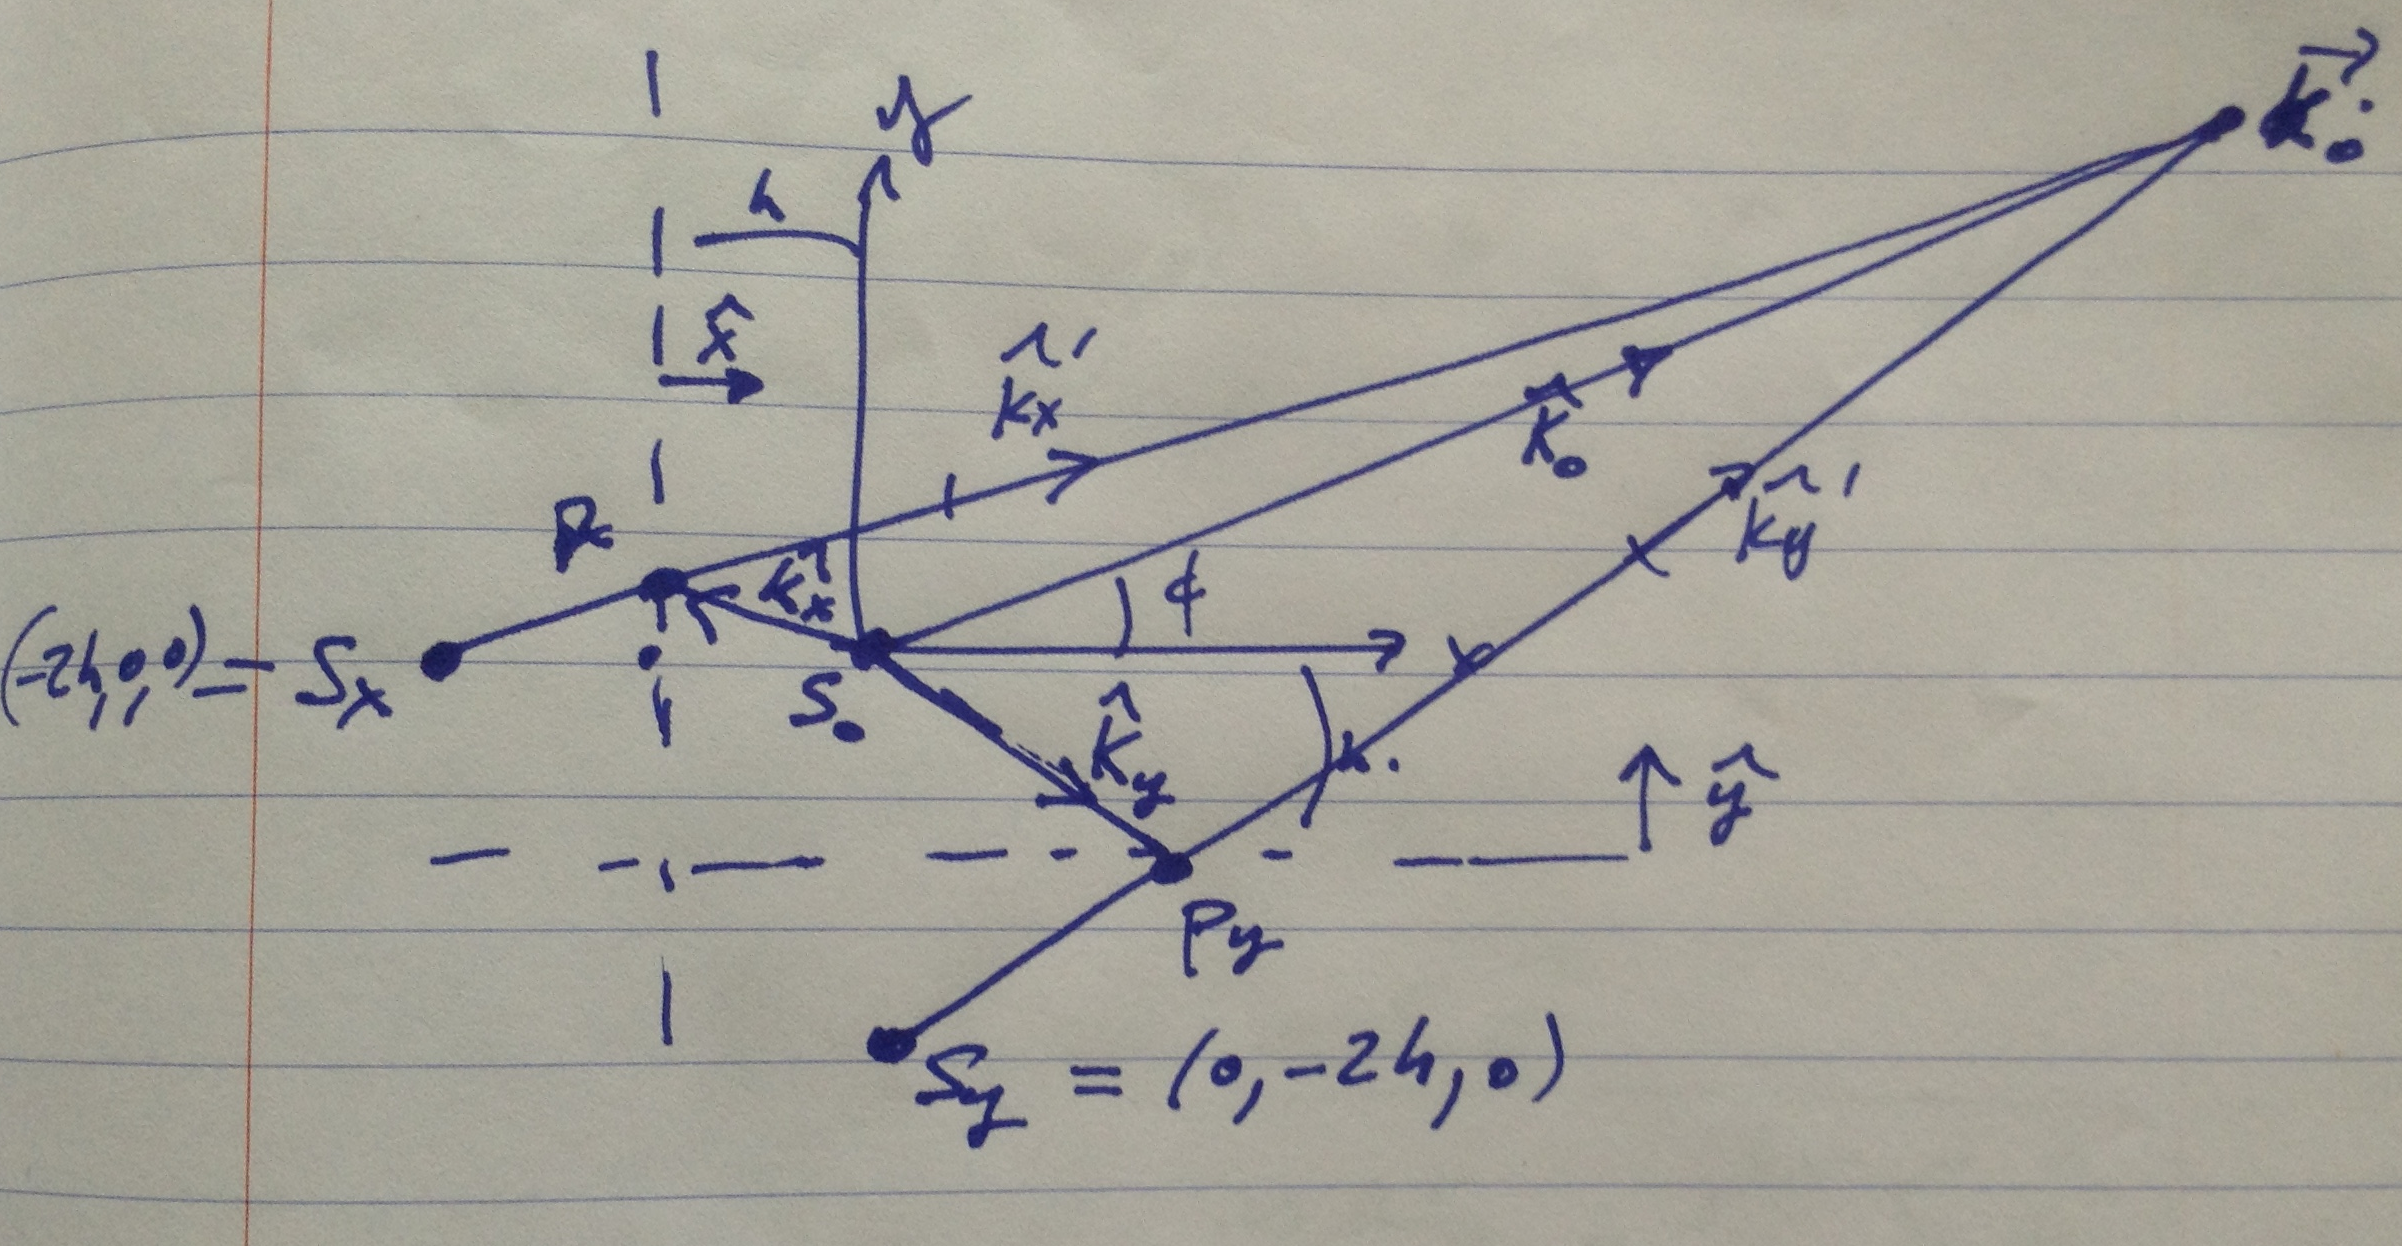 y
k⃗₀
h
x̂
k̂x′
k̂₀
k̂y′
Px
k̂x
ϕ
(-2h,0,0) = Sx
S₀
k̂y
ŷ
Py
Sy = (0,-2h,0)